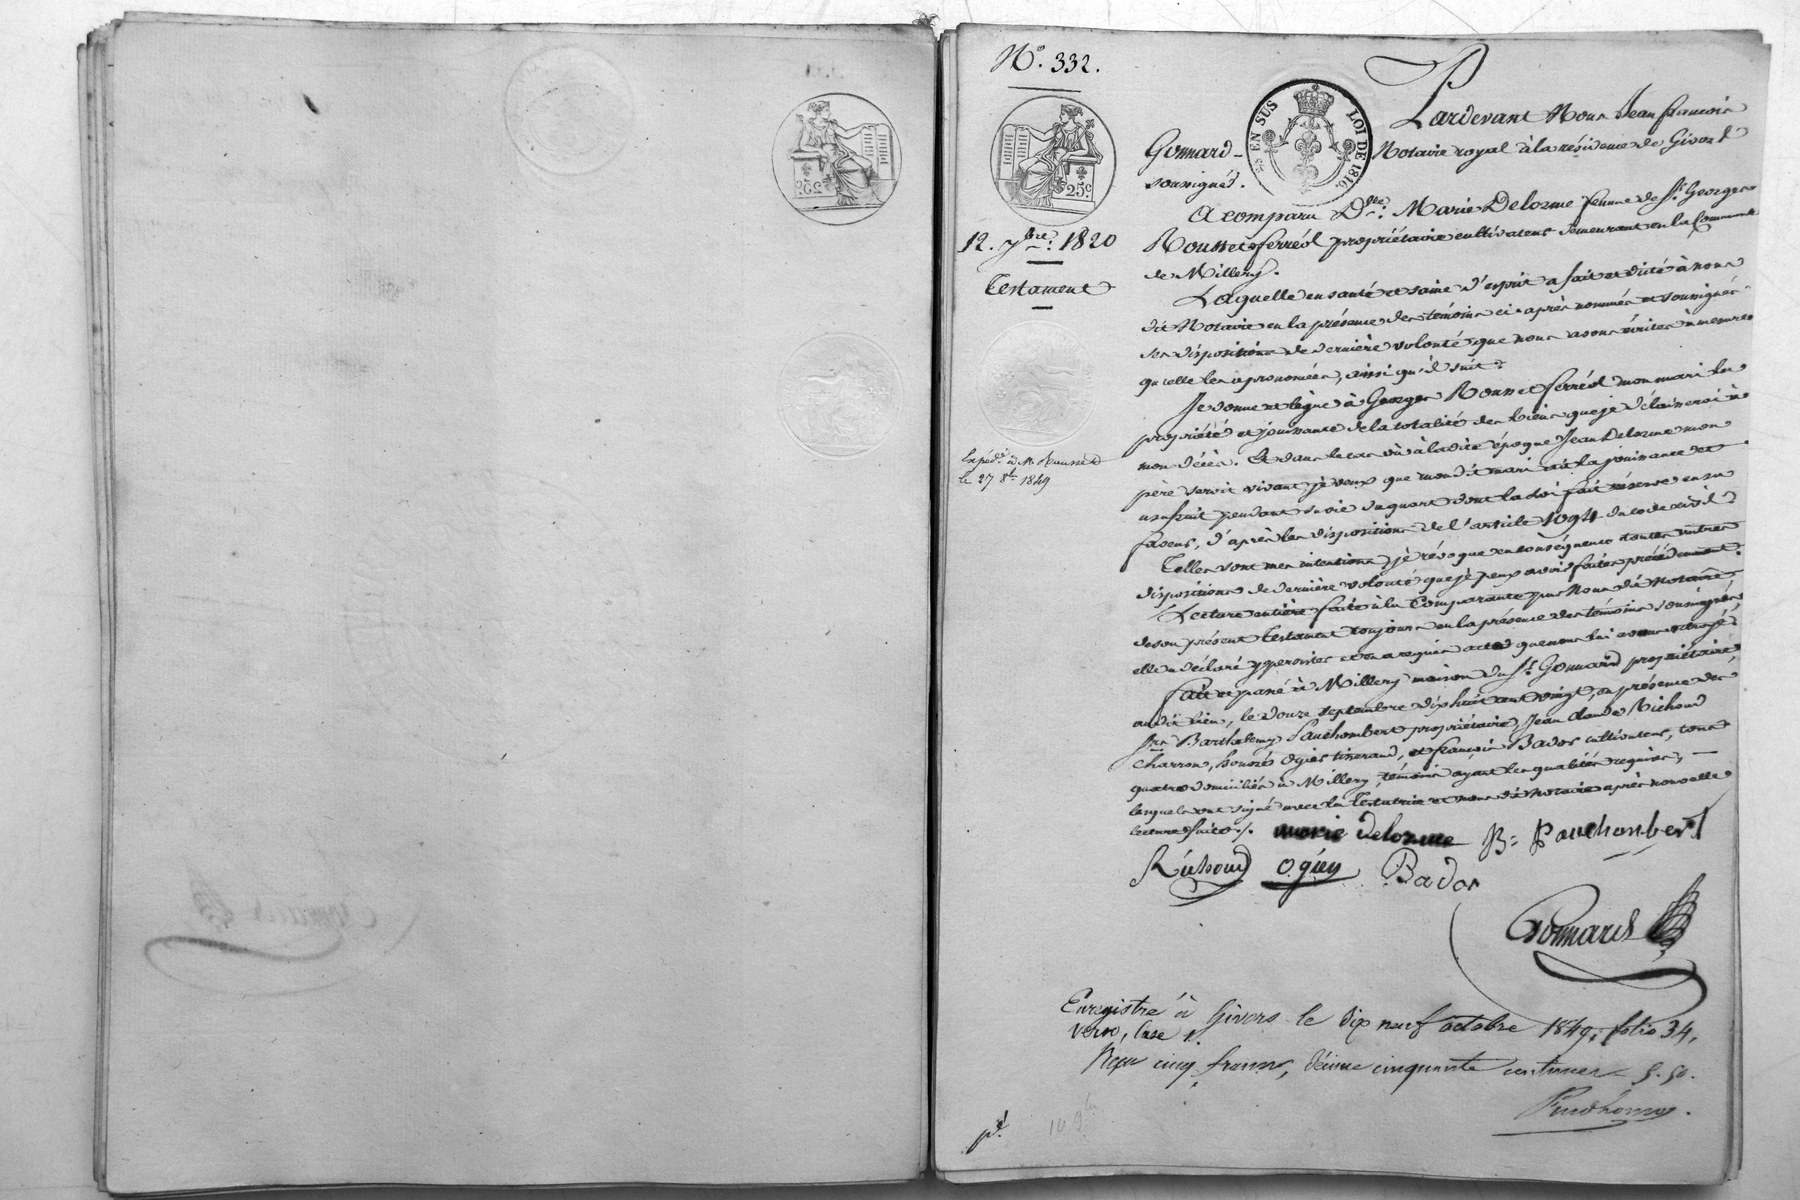 N.° 332.
25 EN SUS
LOI DE 1816.
25c.
12. 7bre. 1820
Testament
Expéd. à Mr. Rousset
le 27 8bre 1849
Pardevant Nous Jean françois
Gonnard Notaire royal à la résidence de Givors
soussignés.
A comparu Dlle. Marie Delorme femme de Sr. Georges
Rousset ferréol propriétaire cultivateur demeurant en la Commune
de Millery.
Laquelle en santé et saine d'esprit a fait et dicté à nous
dit Notaire en la présence des témoins ci-après nommés et soussignés
ses dispositions de dernière volonté que nous avons écrites à mesure
qu'elle les a prononcées, ainsi qu'il suit:
Je donne et lègue à Georges Rousset ferréol mon mari la
propriété et jouissance de la totalité des biens que je délaisserai à
mon décès. Et dans le cas où à ladite époque Jean Delorme mon
père seroit vivant je veux que mon dit mari ait la jouissance et
usufruit pendant sa vie du quart dont la loi fait réserve en sa
faveur, d'après les dispositions de l'article 1094 du code civil.
Telles sont mes intentions, je révoque en conséquence toutes autres
dispositions de dernière volonté que je peux avoir faites précédemment.
Lecture entière faite à la Comparante par Nous dit Notaire
de son présent testament toujours en la présence des témoins soussignés
elle a déclaré y persister et en a requis acte que nous lui avons octroyé.
fait et passé à Millery maison du Sr. Gonnard propriétaire
audit lieu, le douze septembre dix huit cent vingt, en présence de
Srs Barthelemy Pauchombert propriétaire, Jean claude Richoud
charron, Ogier tisserand, et françois Bador cultivateur, tous
quatre domiciliés à Millery, témoins ayant les qualités requises,
lesquels ont signé avec la testatrice et nous dit Notaire après nouvelle
lecture faite./.
marie delorme B. Pauchonbert
Richoud Ogier Bador
Gonnard
Enregistré à Givors le dix neuf octobre 1849, folio 34,
verso, Case 1.
Reçu cinq francs, décime cinquante centimes 5.50.
Prudhomme.